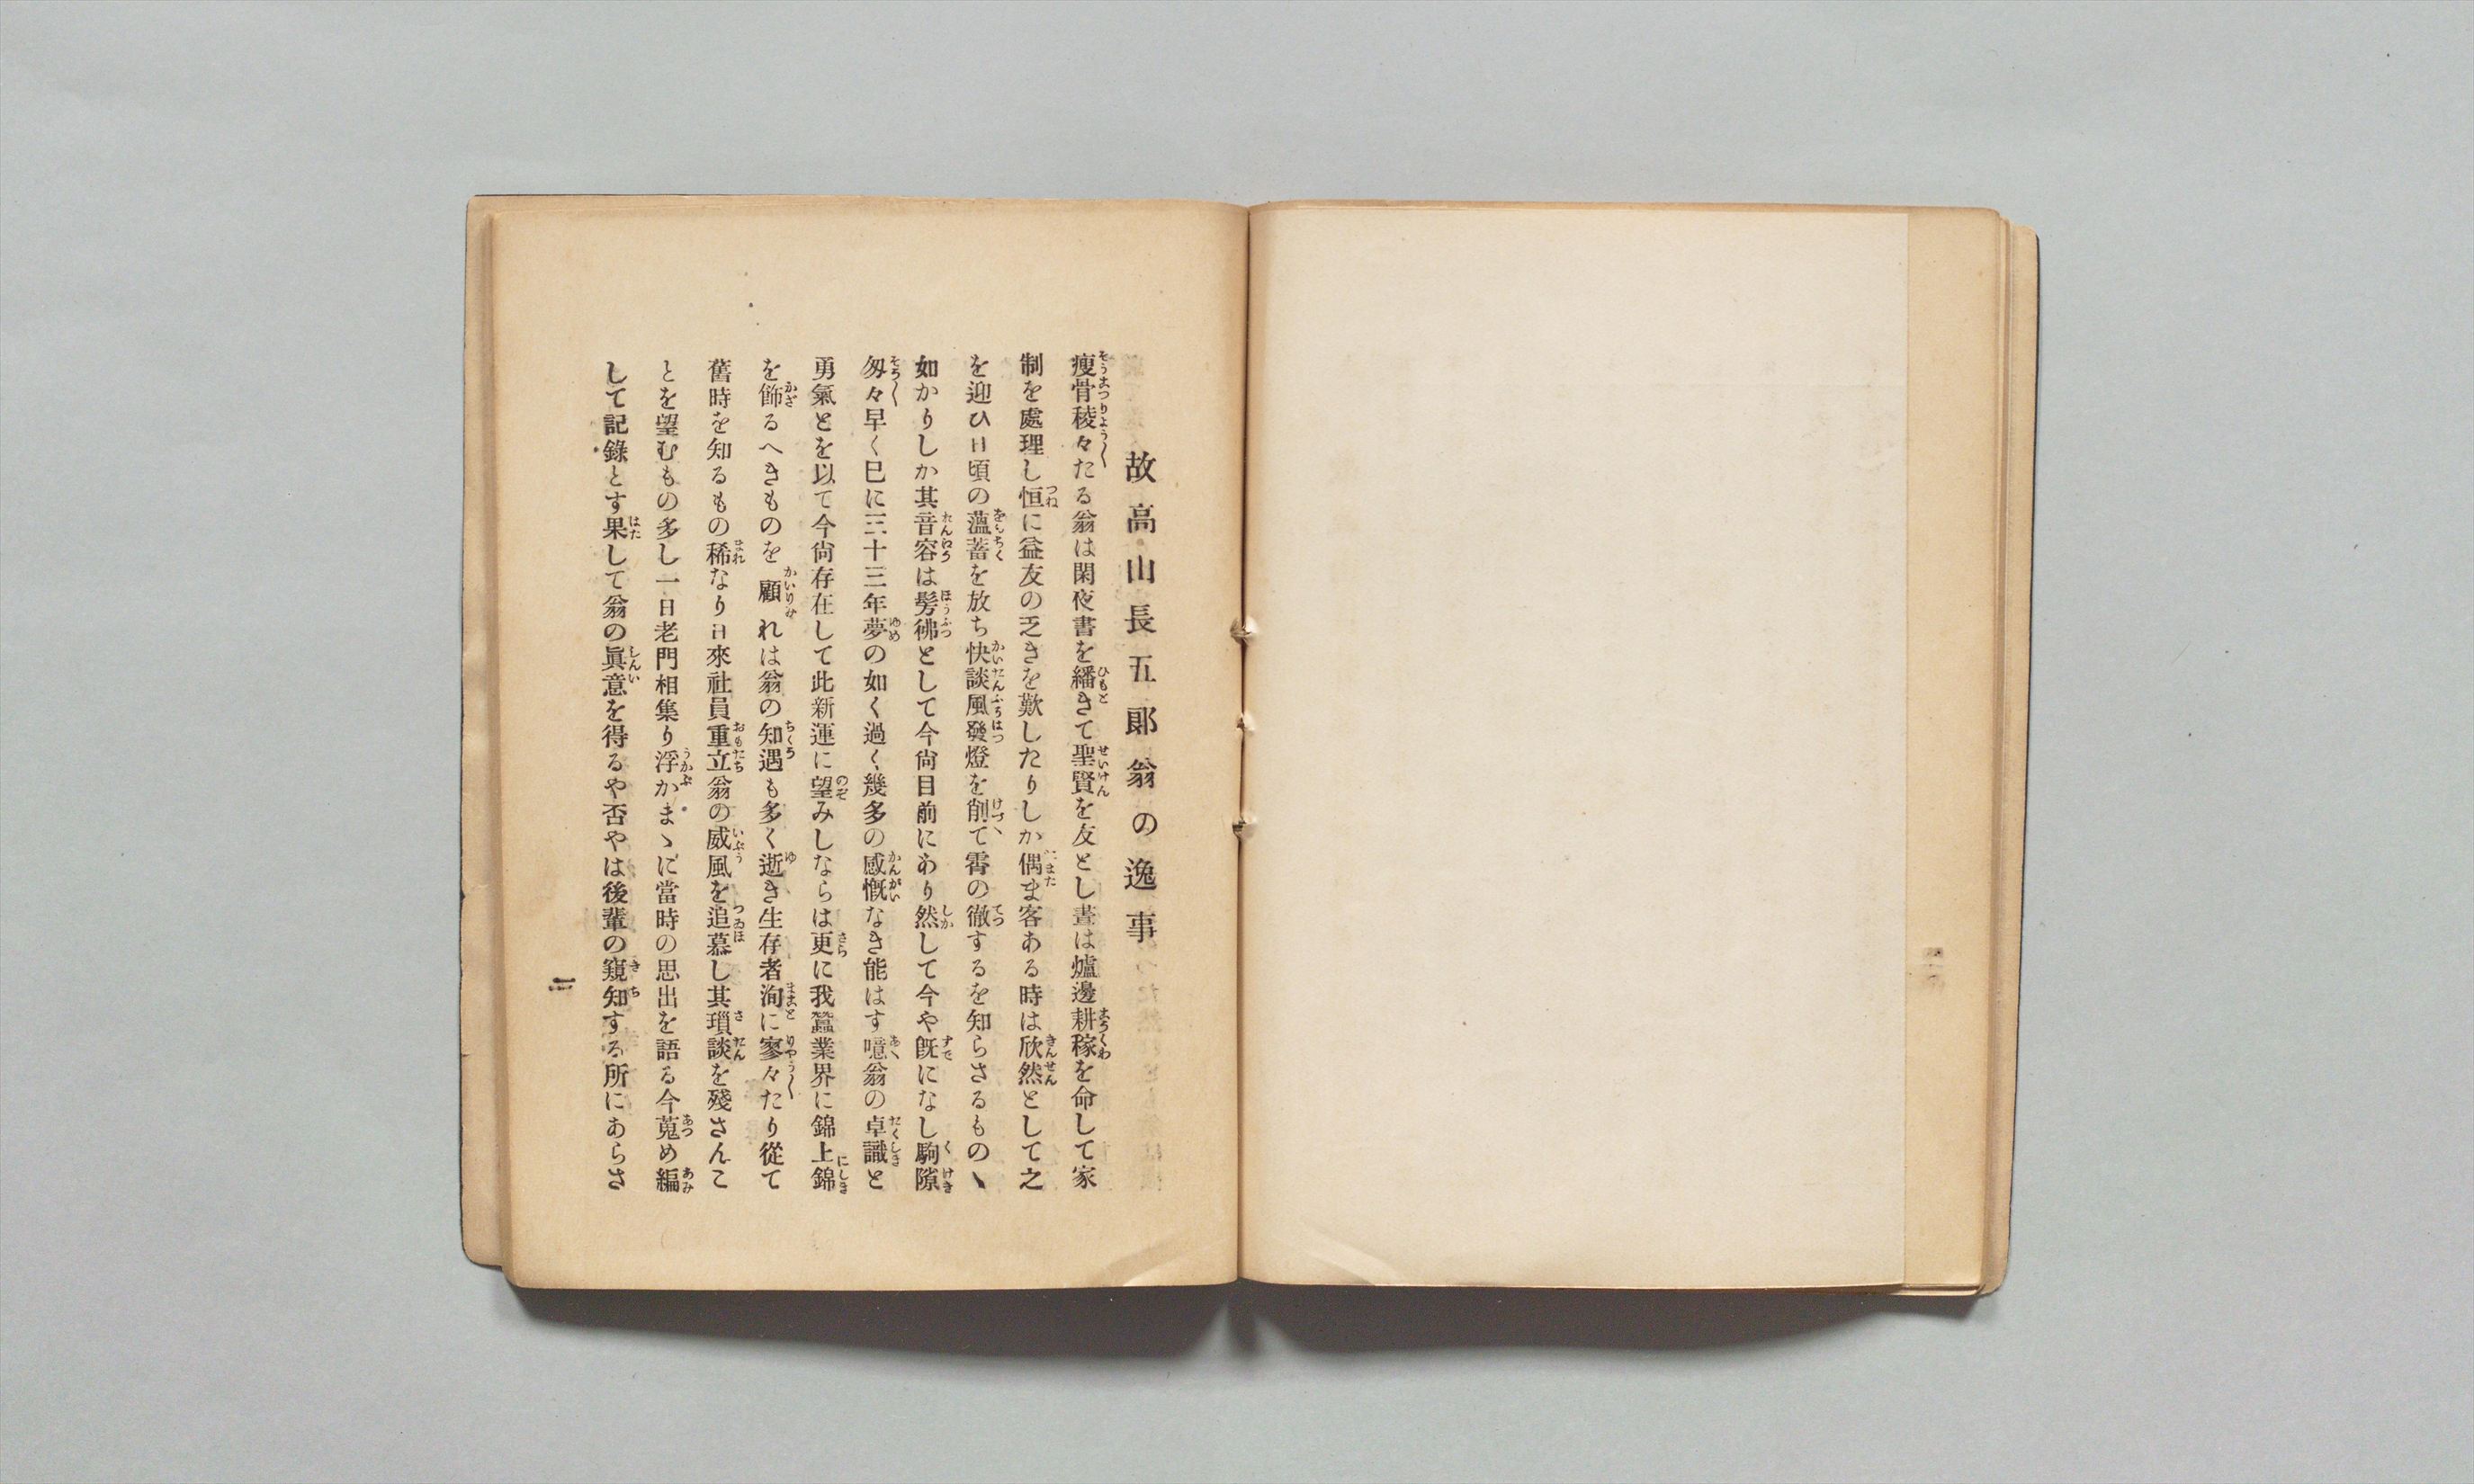 故高山長五郎翁の逸事
瘦骨稜々たる翁は閑夜書を繙きて聖賢を友とし晝は爐邊耕稼を命して家
制を處理し恒に益友の乏きを歎したりしか偶ま客ある時は欣然として之
を迎ひ日頃の薀蓄を放ち快談風發燈を削て霄の徹するを知らさるものヽ
如かりしか其音容は髣彿として今尙目前にあり然して今や旣になし駒隙
匆々早く巳に三十三年夢の如く過く幾多の感慨なき能はす噫翁の卓識と
勇氣とを以て今尙存在して此新運に望みしならは更に我蠶業界に錦上錦
を飾るへきものを顧れは翁の知遇も多く逝き生存者洵に寥々たり從て
舊時を知るもの稀なり日來社員重立翁の威風を追慕し其瑣談を殘さんこ
とを望むもの多し一日老門相集り浮かまヽに當時の思出を語る今蒐め編
して記錄とす果して翁の眞意を得るや否やは後輩の窺知する所にあらさ
一